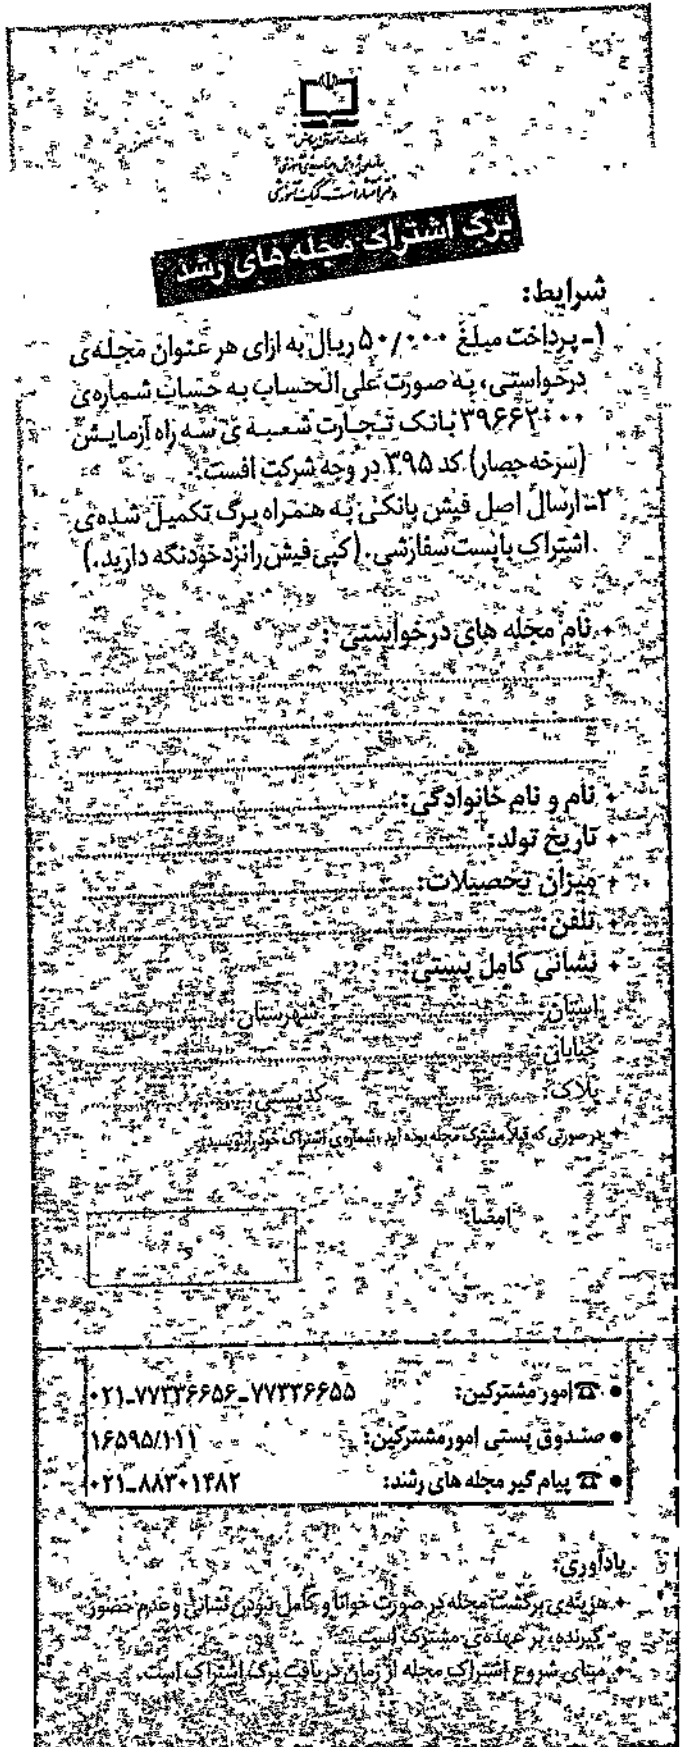 وزارت آموزش و پرورش
سازمان پژوهش و برنامه‌ریزی آموزشی
دفتر انتشارات کمک آموزشی
برگ اشتراک مجله های رشد
شرایط:
۱- پرداخت مبلغ ۵۰/۰۰۰ ریال به ازای هر عنوان مجله‌ی
درخواستی، به صورت علی الحساب به حساب شماره‌ی
۳۹۶۶۲۰۰۰ بانک تجارت شعبه‌ی سه راه آزمایش
(سرخه حصار) کد ۳۹۵ در وجه شرکت افست.
۲- ارسال اصل فیش بانکی به همراه برگ تکمیل شده‌ی
اشتراک با پست سفارشی. (کپی فیش را نزد خود نگه دارید.)
نام مجله های درخواستی :
نام و نام خانوادگی:
تاریخ تولد:
میزان تحصیلات:
تلفن:
نشانی کامل پستی:
استان: شهرستان:
خیابان:
پلاک: کدپستی:
در صورتی که قبلا مشترک مجله بوده اید، شماره‌ی اشتراک خود را بنویسید:
امضا:
امور مشترکین: ۷۷۳۳۶۶۵۵-۷۷۳۳۶۶۵۶-۰۲۱
صندوق پستی امور مشترکین: ۱۶۵۹۵/۱۱۱
پیام گیر مجله های رشد: ۸۸۳۰۱۴۸۲-۰۲۱
یادآوری:
هزینه‌ی برگشت مجله در صورت خوانا و کامل نبودن نشانی و عدم حضور
گیرنده، بر عهده‌ی مشترک است.
مبنای شروع اشتراک مجله از زمان دریافت برگ اشتراک است.